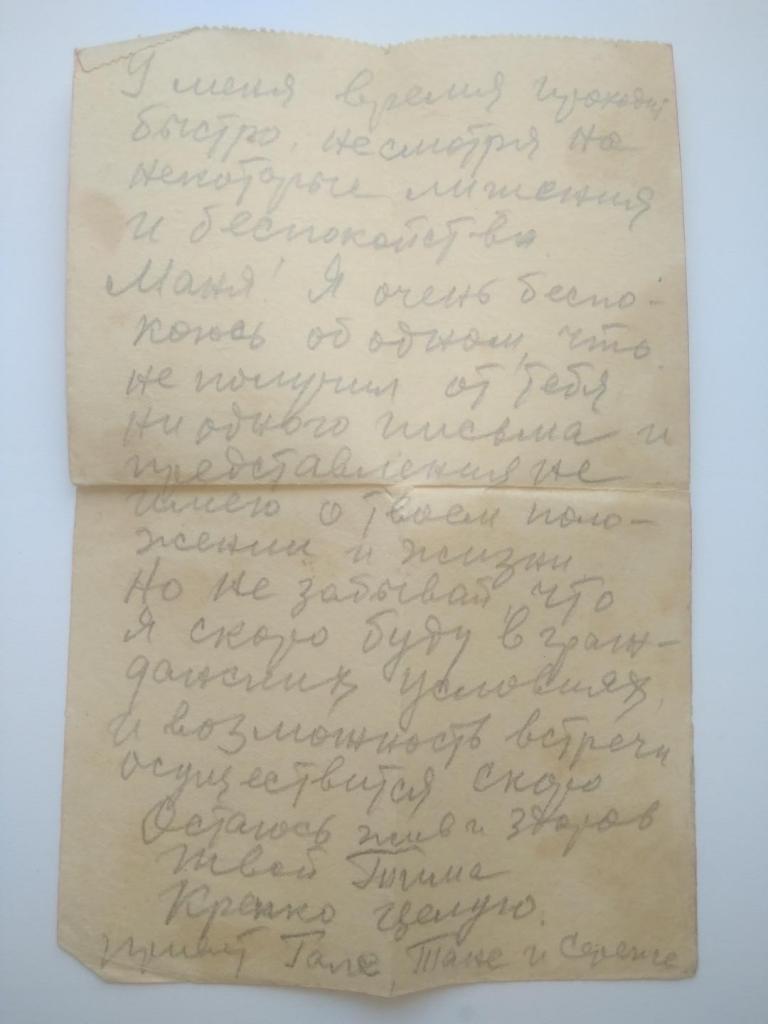 У меня время проходит
быстро, несмотря на
некоторые лишения
и беспокойства.
Маня! Я очень беспо-
коюсь об одном, что
не получил от тебя
ни одного письма и
представления не
имею о твоем поло-
жении и жизни
Но не забывай, что
я скоро буду в граж-
данских условиях,
и возможность встречи
осуществится скоро
Остаюсь жив и здоров
Твой Тима
Крепко целую.
Привет Гале, Тане и Сереже